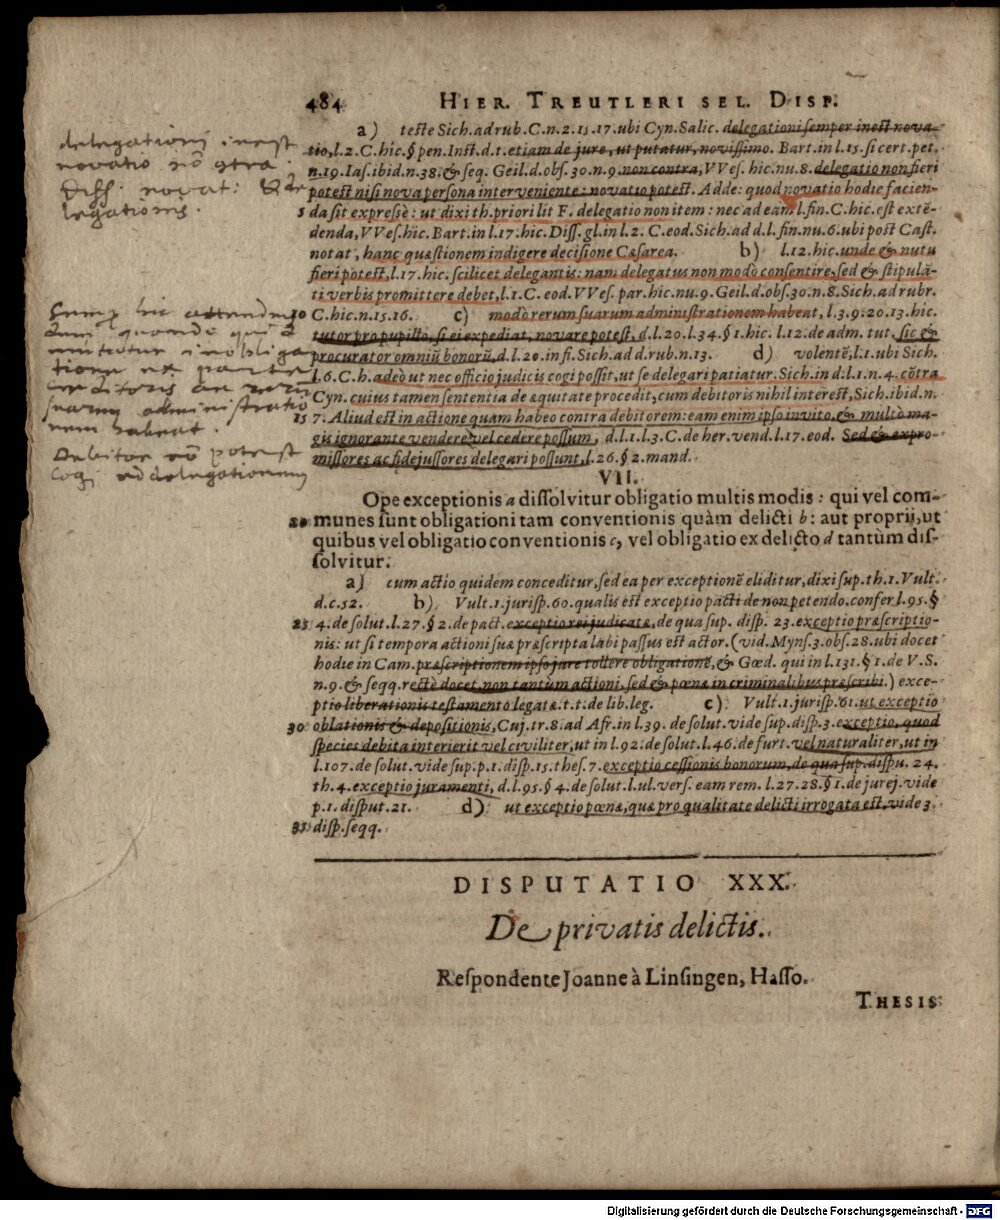 484 HIER. TREUTLERI SEL. DISP.
a) teste Sich. ad rub. C. n. 2. 15. 17. ubi Cyn. Salic. delegationi semper inest nova-
tio, l. 2. C. hic. § pen. Inst. d. t. etiam de jure, ut putatur, novissimo. Bart. in l. 15. si cert. pet.
n. 19. Ias. ibid. n. 38. & seq. Geil. d. obs. 30. n. 9. non contra, VVes. hic. nu. 8. delegatio non fieri
potest nisi nova persona interveniente: novatio potest. Adde: quod novatio hodie facien-
5 da sit expresè: ut dixi th. priori lit F. delegatio non item: nec ad eam l. fin. C. hic. est extē-
denda, VVes. hic. Bart. in l. 17. hic. Diss. gl. in l. 2. C. eod. Sich. ad d. l. fin. nu. 6. ubi post Cast.
notat, hanc quæstionem indigere decisione Cæsarea. b) l. 12. hic. unde & nutu
fieri potest, l. 17. hic. scilicet delegantis: nam delegatus non modò consentire, sed & stipulā-
ti verbis promittere debet, l. 1. C. eod. VVes. par. hic. nu. 9. Geil. d. obs. 30. n. 8. Sich. ad rubr.
10 C. hic. n. 15. 16. c) modò rerum suarum administrationem habeat, l. 3. 9. 20. 13. hic.
tutor pro pupillo, si ei expediat, novare potest, d. l. 20. l. 34. § 1. hic. l. 12. de adm. tut. sic &
procurator omniū bonorū, d. l. 20. in fi. Sich. ad d. rub. n. 13. d) volentē, l. 1. ubi Sich.
l. 6. C. h. adeò ut nec officio judicis cogi possit, ut se delegari patiatur. Sich. in d: l. 1. n. 4. cōtra
Cyn. cuius tamen sententia de æquitate procedit, cum debitoris nihil interest, Sich. ibid. n.
15 7. Aliud est in actione quam habeo contra debitorem: eam enim ipso invito, & multò ma-
gis ignorante vendere vel cedere possum, d. l. 1. l. 3. C. de her. vend. l. 17. eod. Sed & expro-
missores ac fidejussores delegari possunt, l. 26. § 2. mand.
VII.
Ope exceptionis a dissolvitur obligatio multis modis: qui vel com-
20 munes sunt obligationi tam conventionis quàm delicti b: aut proprii, ut
quibus vel obligatio conventionis c, vel obligatio ex delicto d tantùm dis-
solvitur.
a) cum actio quidem conceditur, sed ea per exceptionē eliditur, dixi sup. th. 1. Vult.
d. c. 52. b) Vult. 1. jurisp. 60. qualis est exceptio pacti de non petendo. confer l. 95. §
25 4. de solut. l. 27. § 2. de pact. exceptio rei judicatæ, de qua sup. disp. 23. exceptio præscriptio-
nis: ut si tempora actioni suæ præscripta labi passus est actor. (vid. Myns. 3. obs. 28. ubi docet
hodie in Cam. præscriptionem ipso jure tollere obligationē, & Gœd. qui in l. 131. § 1. de V. S.
n. 9. & seqq. rectè docet, non tantùm actioni, sed & pœnæ in criminalibus præscribi.) exce-
ptio liberationis testamento legatæ. t. t. de lib. leg. c) Vult. 1. jurisp. 61. ut exceptio
30 oblationis & depositionis, Cuj. tr. 8. ad Afr. in l. 39. de solut. vide sup. disp. 3. exceptio, quod
species debita interierit vel civiliter, ut in l. 92. de solut. l. 46. de furt. vel naturaliter, ut in
l. 107. de solut. vide sup. p. 1. disp. 15. thes. 7. exceptio cessionis bonorum, de qua sup. dispu. 24.
th. 4. exceptio juramenti, d. l. 95. § 4. de solut. l. ul. vers. eam rem. l. 27. 28. § 1. de jurej. vide
p. 1. disput. 21. d) ut exceptio pœnæ, quæ pro qualitate delicti irrogata est, vide 3.
35 disp. seqq.
DISPUTATIO XXX.
De privatis delictis.
Respondente Joanne à Linsingen, Hasso.
THESIS
delegationi inest
novatio nō contra
Diff. novat: & de
legationis.
Semp hic attenden
dum quando
mutatur in obliga
tione ex parte
creditoris an reru
suarum administratio
nem habeat.
Debitor nō potest
cogi ad delegationem
Digitalisierung gefördert durch die Deutsche Forschungsgemeinschaft - DFG